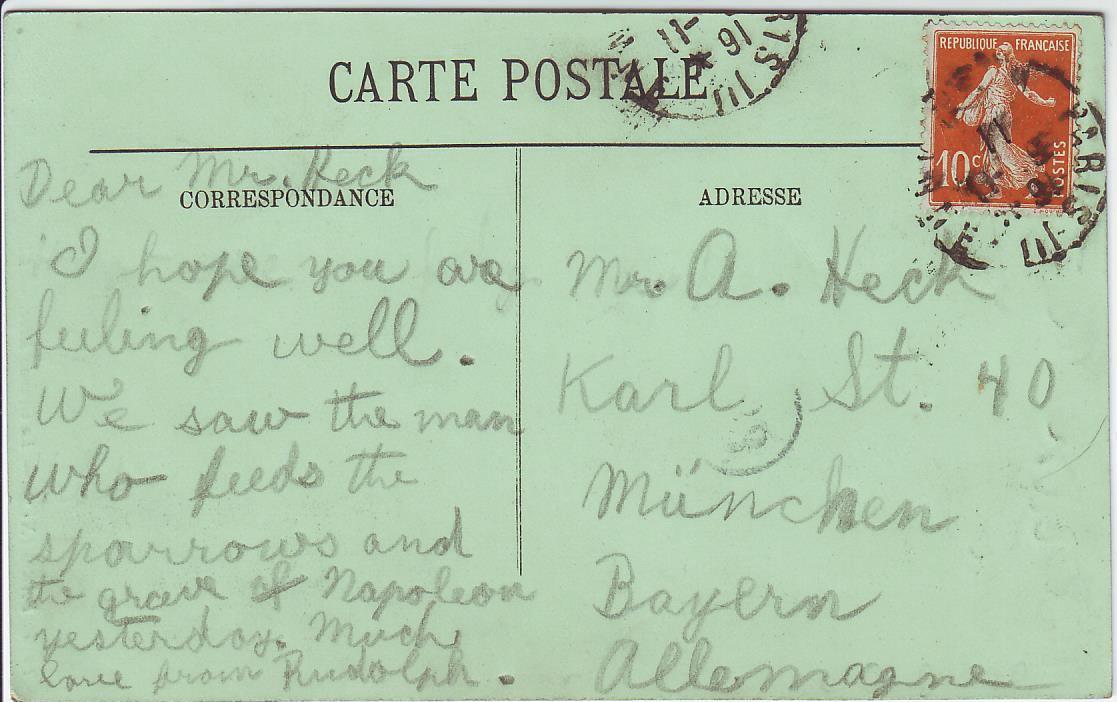 CARTE POSTALE
CORRESPONDANCE
Dear Mr. Heck
I hope you are
feeling well.
We saw the man
who feeds the
sparrows and
the grave of Napoleon
yesterday. Much
love from Rudolph.
ADRESSE
Mr. A. Heck
Karl St. 40
München
Bayern
Allemagne
REPUBLIQUE FRANÇAISE
10c POSTES
PARIS III